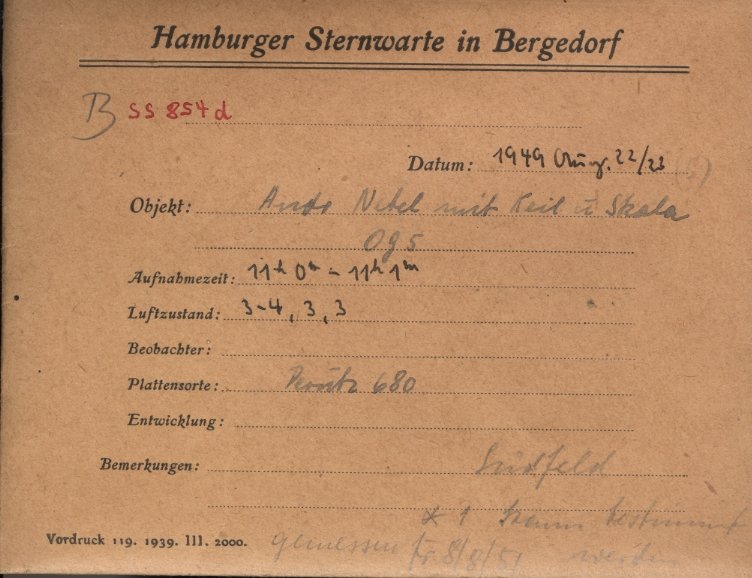 Hamburger Sternwarte in Bergedorf
B SS 854 d
Datum: 1949 Aug. 22/23
Objekt: Andr Nebel mit Keil u Skala
Og 5
Aufnahmezeit: 11h 0m - 11h 1m
Luftzustand: 3-4, 3, 3
Beobachter:
Plattensorte: Perutz 680
Entwicklung:
Bemerkungen: Südfeld
* 1 kann bestimmt
Vordruck 119. 1939. III. 2000. gemessen 8/8/51 werden